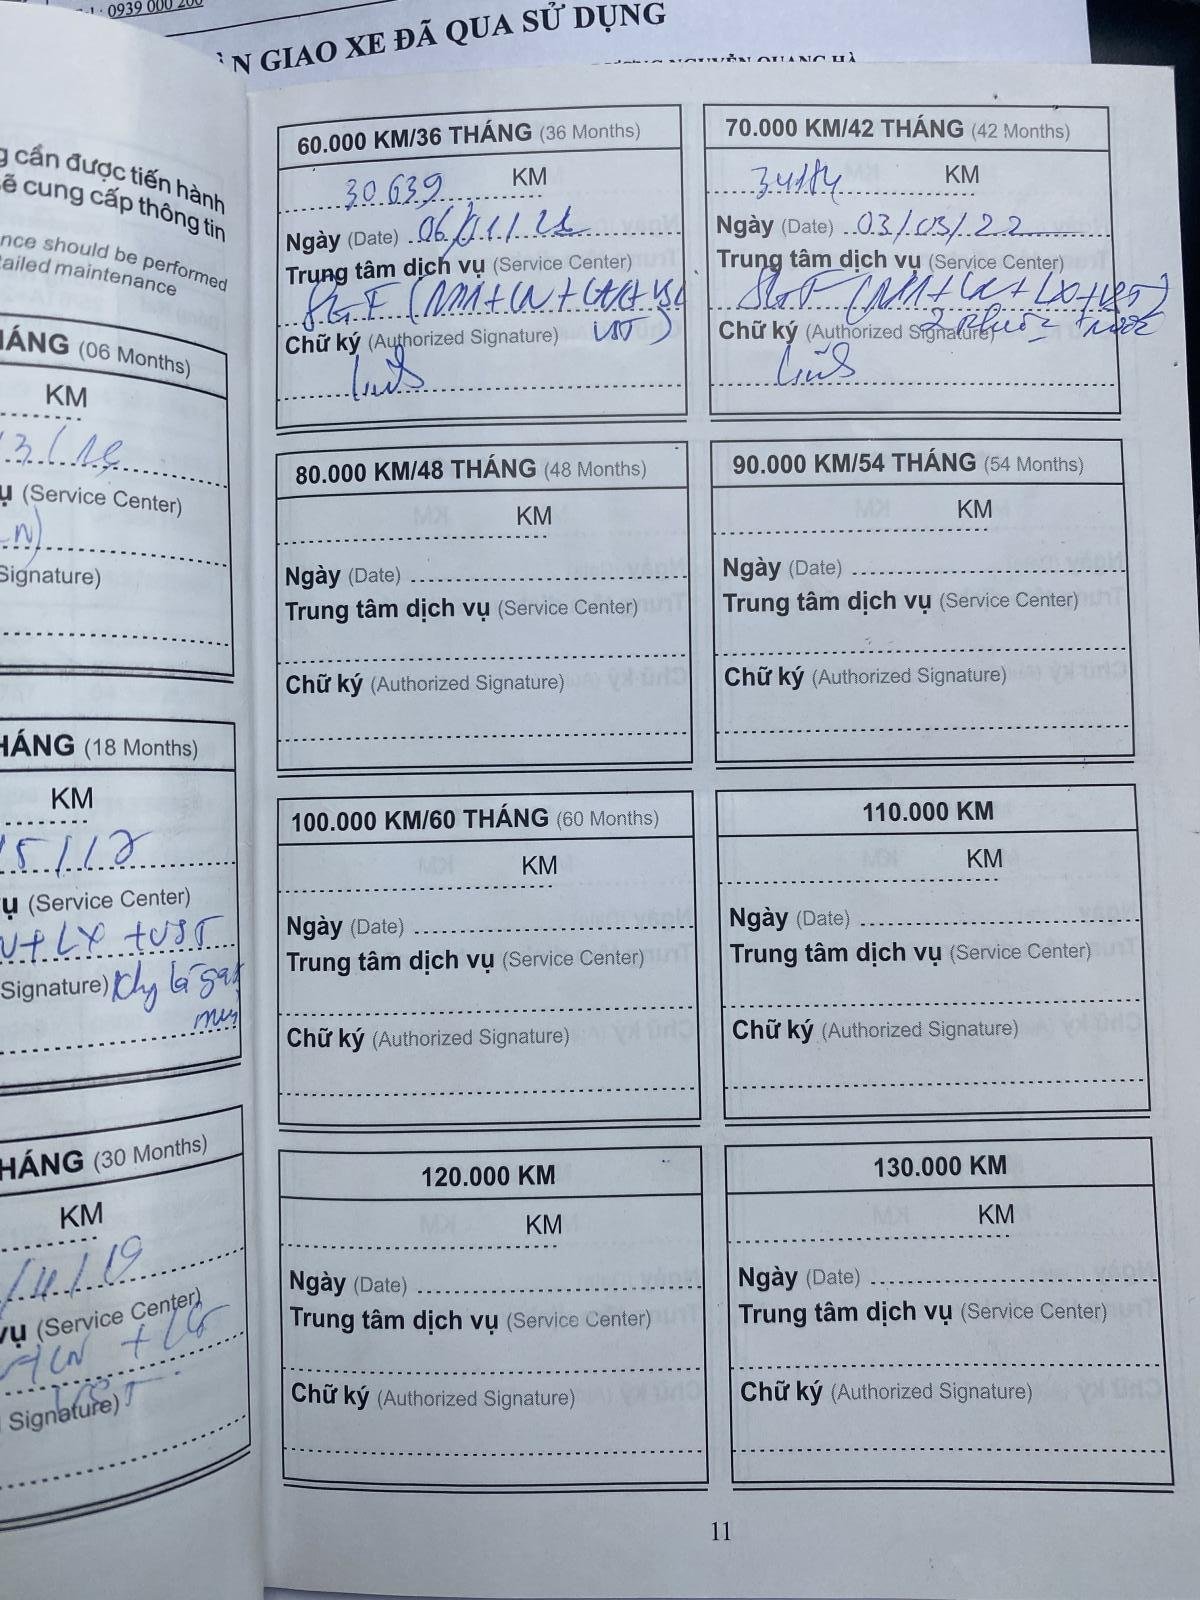 : 0939 000 200
N GIAO XE ĐÃ QUA SỬ DỤNG
NGUYỄN QUANG HÀ
g cần được tiến hành
ẽ cung cấp thông tin
nce should be performed
tailed maintenance
HÁNG (06 Months)
KM
3/18
ụ (Service Center)
Signature)
HÁNG (18 Months)
KM
15/12
ụ (Service Center)
+ LX + VST
Signature)
HÁNG (30 Months)
KM
/4/19
vụ (Service Center)
Signature)
60.000 KM/36 THÁNG (36 Months)
30639 KM
Ngày (Date) 06/11/21
Trung tâm dịch vụ (Service Center)
SGF
Chữ ký (Authorized Signature) VST)
70.000 KM/42 THÁNG (42 Months)
34184 KM
Ngày (Date) 03/03/22
Trung tâm dịch vụ (Service Center)
SGF
Chữ ký (Authorized Signature)
80.000 KM/48 THÁNG (48 Months)
KM
Ngày (Date)
Trung tâm dịch vụ (Service Center)
Chữ ký (Authorized Signature)
90.000 KM/54 THÁNG (54 Months)
KM
Ngày (Date)
Trung tâm dịch vụ (Service Center)
Chữ ký (Authorized Signature)
100.000 KM/60 THÁNG (60 Months)
KM
Ngày (Date)
Trung tâm dịch vụ (Service Center)
Chữ ký (Authorized Signature)
110.000 KM
KM
Ngày (Date)
Trung tâm dịch vụ (Service Center)
Chữ ký (Authorized Signature)
120.000 KM
KM
Ngày (Date)
Trung tâm dịch vụ (Service Center)
Chữ ký (Authorized Signature)
130.000 KM
KM
Ngày (Date)
Trung tâm dịch vụ (Service Center)
Chữ ký (Authorized Signature)
11